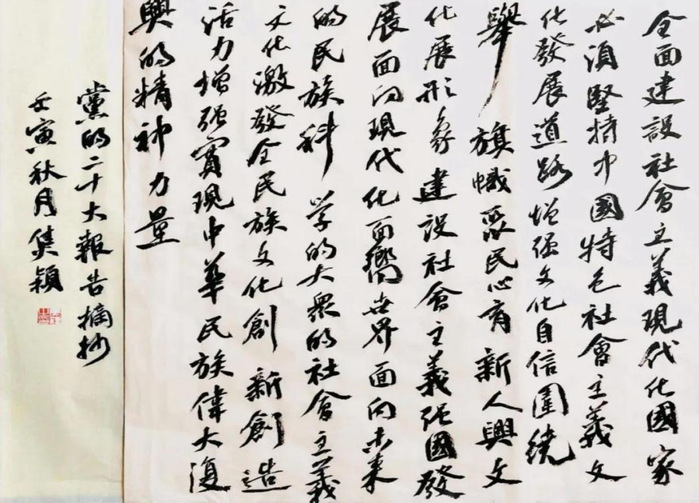 全面建設社會主義現代化國家
必須堅持中國特色社會主義文
化發展道路增强文化自信圍繞
舉旗幟聚民心育新人興文
化展形象建設社會主義强國發
展面向現代化面嚮世界面向未来
的民族科學的大衆的社會主義
文化激發全民族文化創新創造
活力增强實現中華民族偉大復
興的精神力量
黨的二十大報告摘抄
壬寅秋月集穎